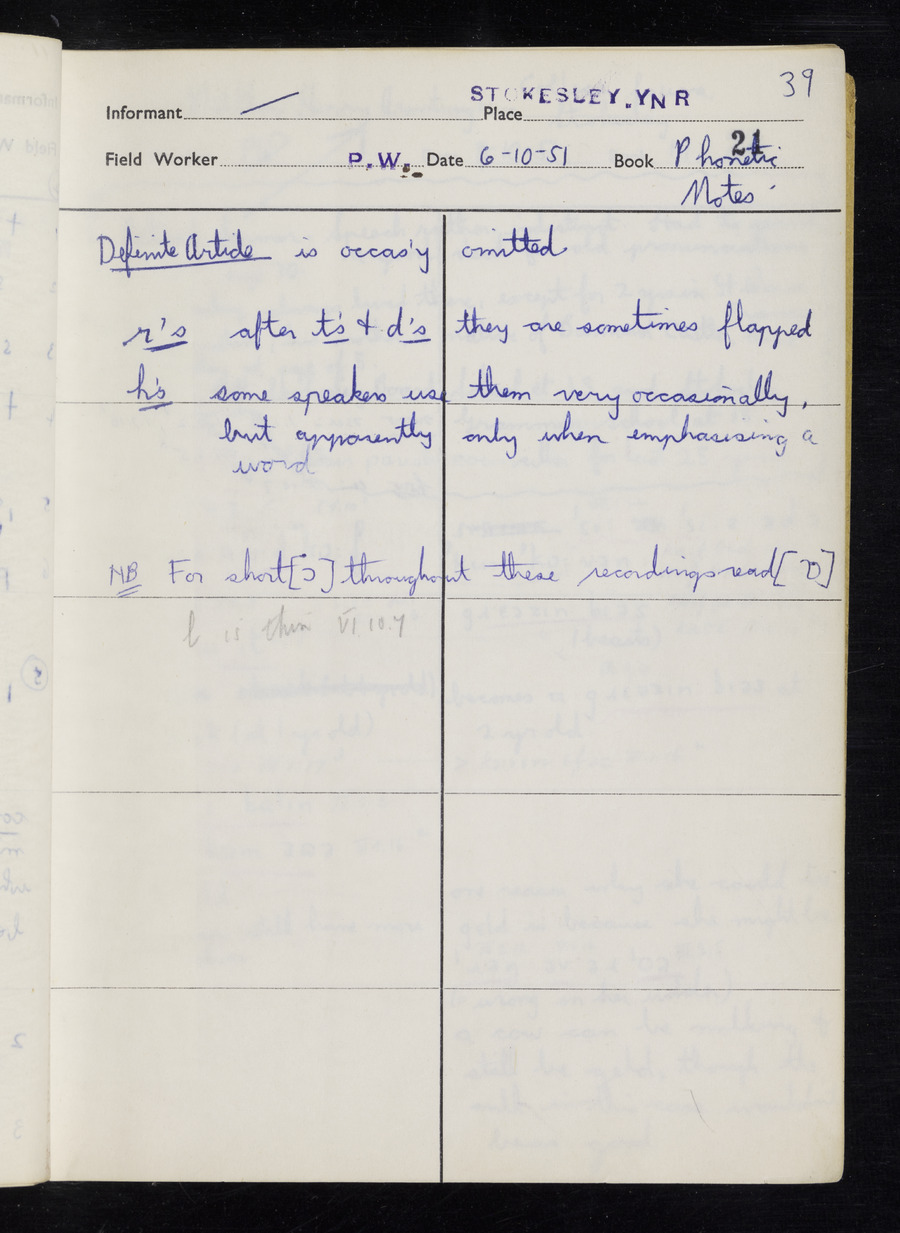 39
Informant — Place STOKESLEY. YNR
Field Worker P.W. Date 6-10-51 Book 21 Phonetic
Notes
Definite Article is occas'y omitted
r's after t's & d's they are sometimes flapped
h's some speakers use them very occasionally,
but apparently only when emphasising a
word
NB For short [ɔ] throughout these recordings read [ɒ]
l is thin VI.10.7